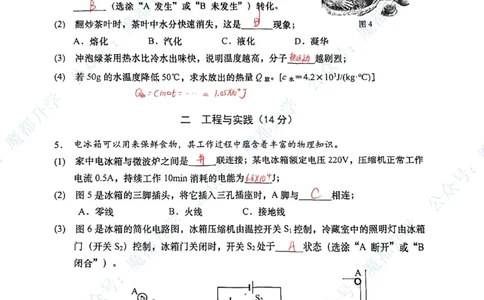 B （选涂“A 发生”或“B 未发生”）转化。
(2) 翻炒茶叶时，茶叶中水分快速消失，这是 B 现象；
图 4
A．熔化 B．汽化 C．液化 D．凝华
(3) 冲泡绿茶用热水比冷水出味快，说明温度越高，分子 热运动 越剧烈；
(4) 若 50g 的水温度降低 50℃，求水放出的热量 Q放。[c水=4.2×10³J/(kg·℃)]
Q放=cm∆t=…=1.05×10⁴J
二 工程与实践（14 分）
5．电冰箱可以用来保鲜食物，其工作过程中蕴含着丰富的物理知识。
(1) 家中电冰箱与微波炉之间是 并 联连接；某电冰箱额定电压 220V，压缩机正常工作
电流 0.5A，持续工作 10min 消耗的电能为 6.6×10⁴ J；
(2) 图 5 是冰箱的三脚插头，将它插入三孔插座时，A 脚与 C 相连；
A．零线 B．火线 C．接地线
(3) 图 6 是冰箱的简化电路图，冰箱压缩机由温控开关 S₁ 控制，冷藏室中的照明灯由冰箱
门（开关 S₂）控制，冰箱门关闭时，开关 S₂ 处于 A 状态（选涂“A 断开”或“B
闭合”）。
A
S₁
A
魔都升学
公众号：